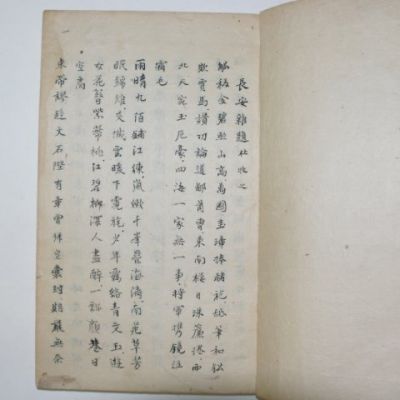 長安雜題 杜牧之
觚稜金碧照山高萬國圭璋捧赭袍舐筆和鉛
欺賈馬讚功論道鄙蕭曹東南樓日珠簾捲西
北天宛玉厄豪四海一家無一事將軍携鏡泣
霜毛
雨晴九陌鋪江練嵐嫩千峯疊海濤南苑草芳
眠錦雉夾城雲暖下霓旄少年羈絡青文玉遊
女花簪紫蔕桃江碧柳深人盡醉一瓢顏巷日
空高
束帶謬趨文石陛有章曾拜皂囊封期嚴無奈